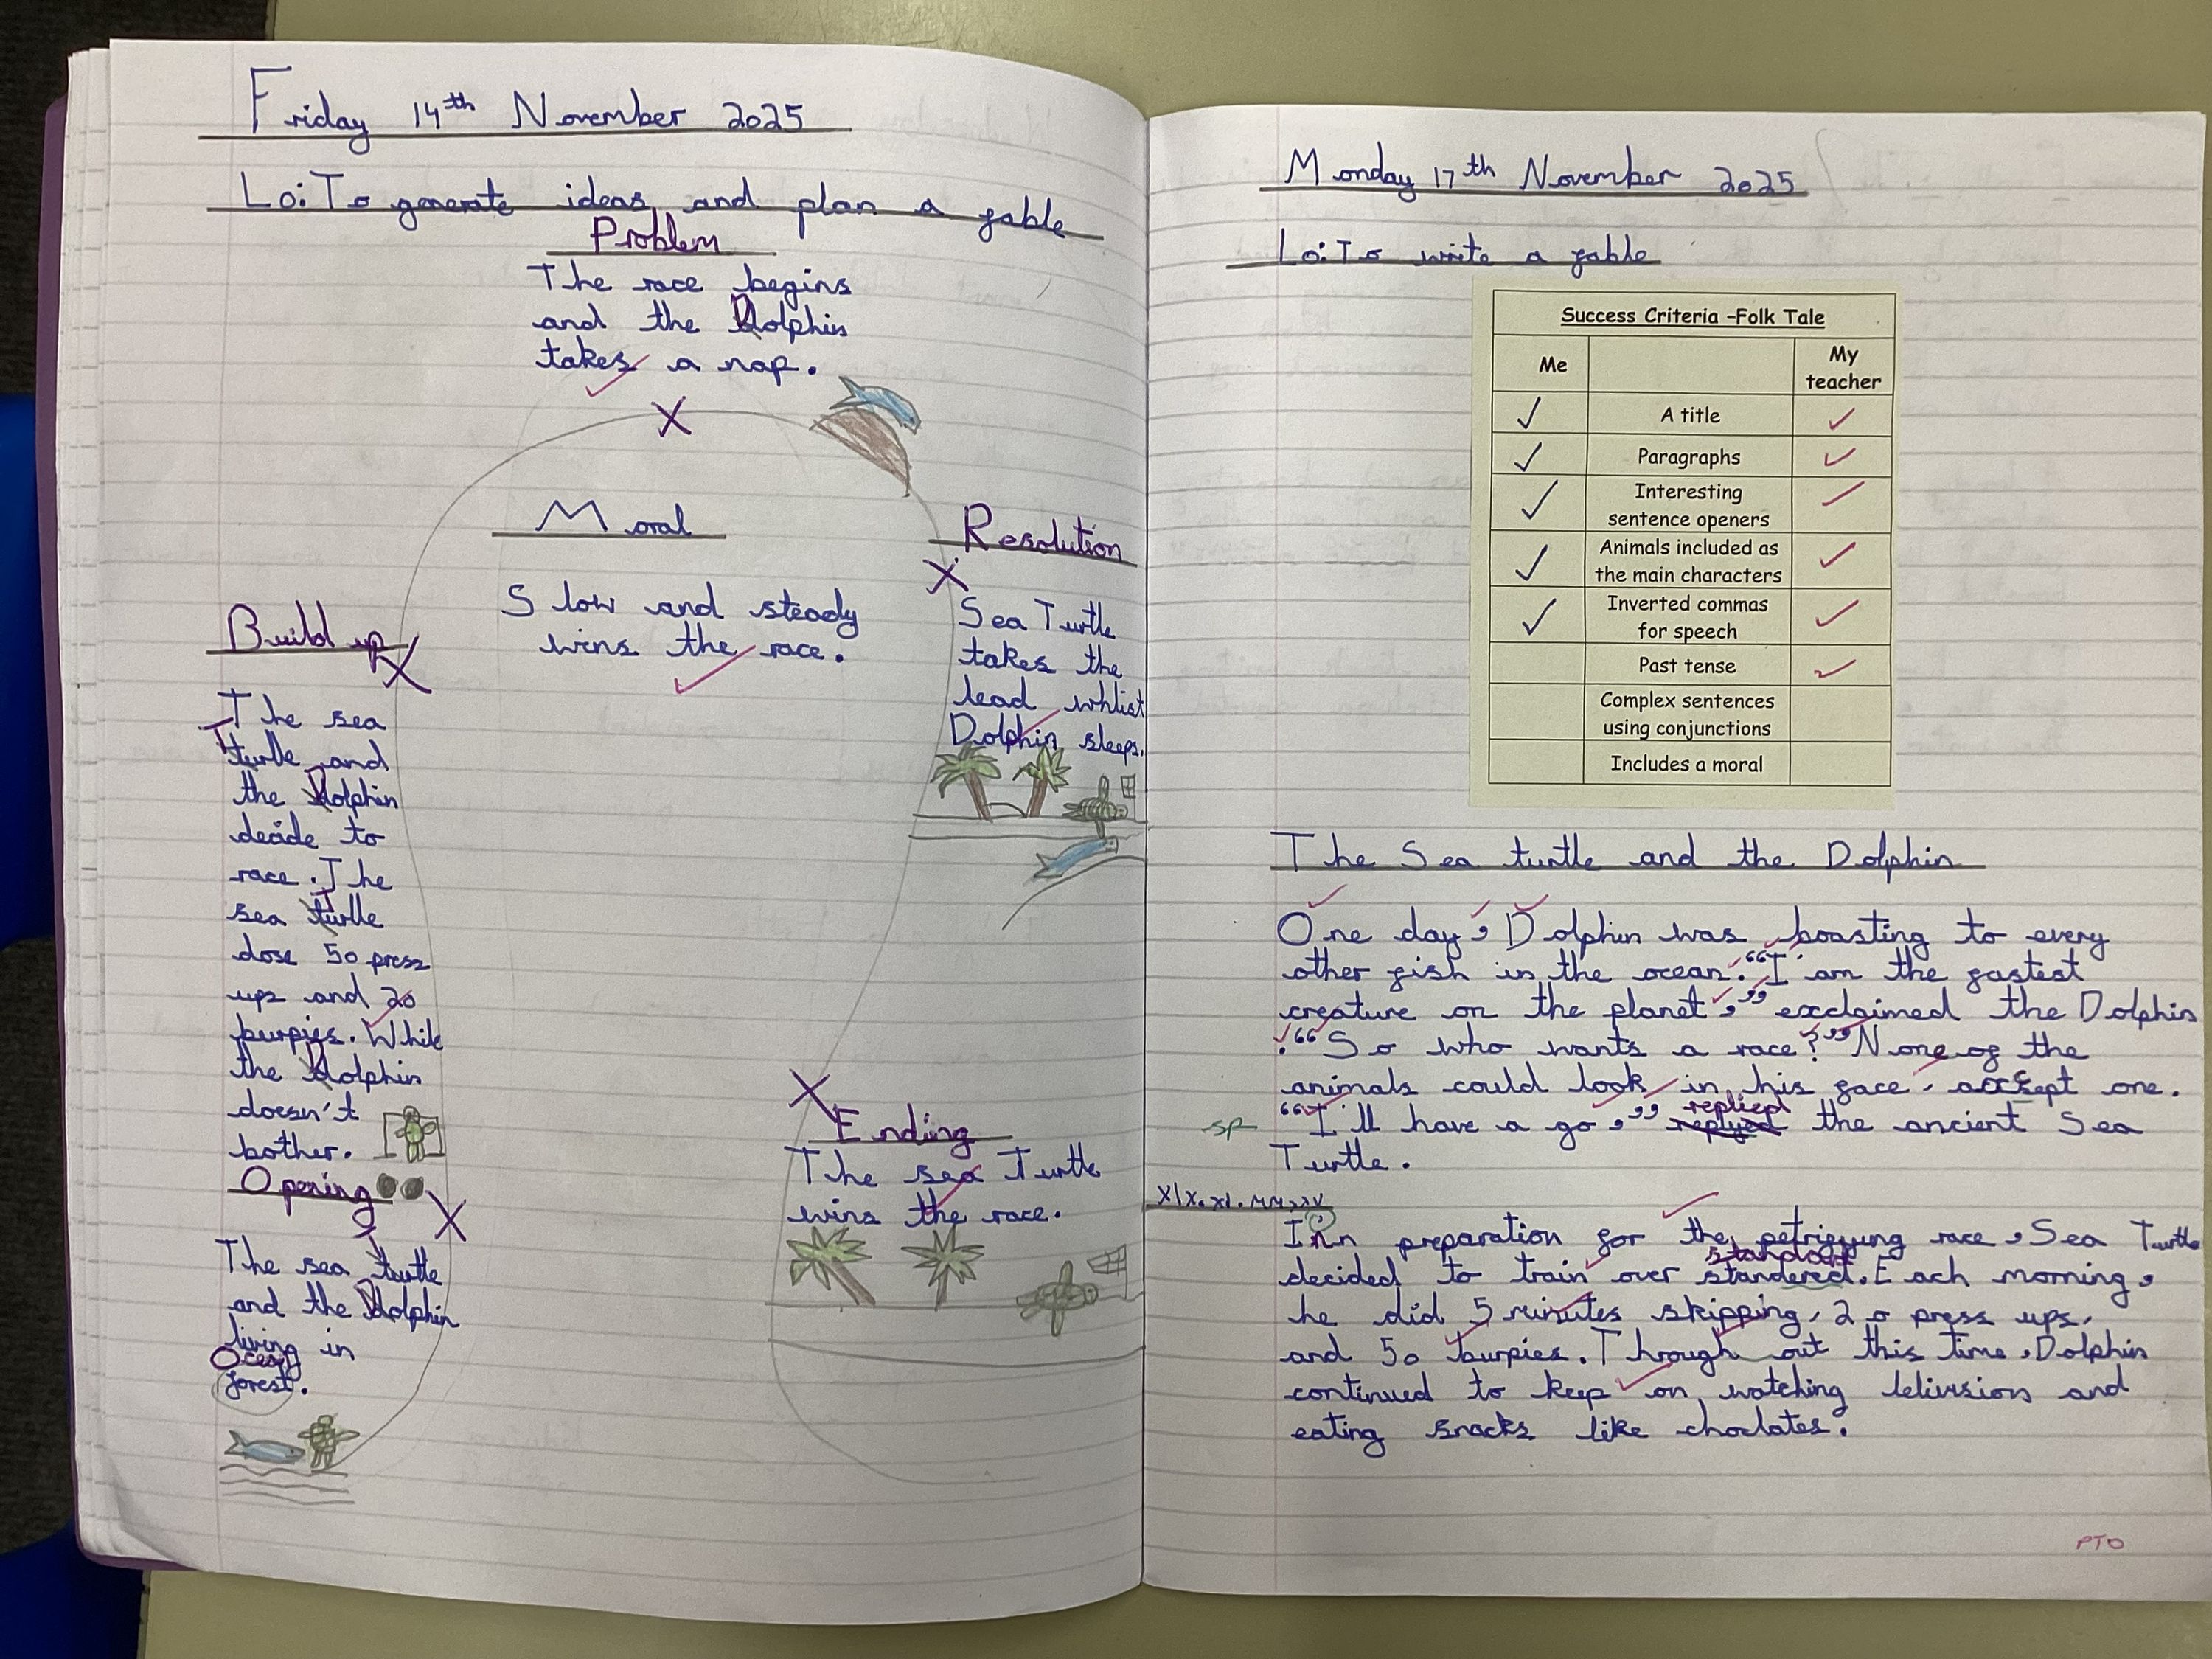 Friday 14th November 2025
Lo: To generate ideas and plan a fable
Problem
The race begins
and the Dolphin
takes a nap.
Moral
Slow and steady
wins the race.
Resolution
Sea Turtle
takes the
lead whlist
Dolphin sleeps.
Build up
The sea
Turtle and
the Dolphin
decide to
race. The
sea Turtle
dose 50 press
ups and 20
burpies. While
the Dolphin
doesn't
bother.
Opening
The sea Turtle
and the Dolphin
living in
Ocean
forest.
Ending
The sea Turtle
wins the race.
Monday 17th November 2025
Lo: To write a fable
Success Criteria -Folk Tale
Me
My
teacher
A title
Paragraphs
Interesting
sentence openers
Animals included as
the main characters
Inverted commas
for speech
Past tense
Complex sentences
using conjunctions
Includes a moral
The Sea turtle and the Dolphin
One day, Dolphin was boasting to every
other fish in the ocean. "I am the fastest
creature on the planet," exclaimed the Dolphin
. "So who wants a race?" None of the
animals could look in his face, accept one.
replied
sp "I'll have a go," replyed the ancient Sea
Turtle.
In preparation for the petrifying race, Sea Turtle
standard
decided to train over standered. Each morning,
he did 5 minutes skipping, 20 press ups,
and 50 burpies. Through out this time, Dolphin
continued to keep on watching telivision and
eating snacks like choclates.
PTO